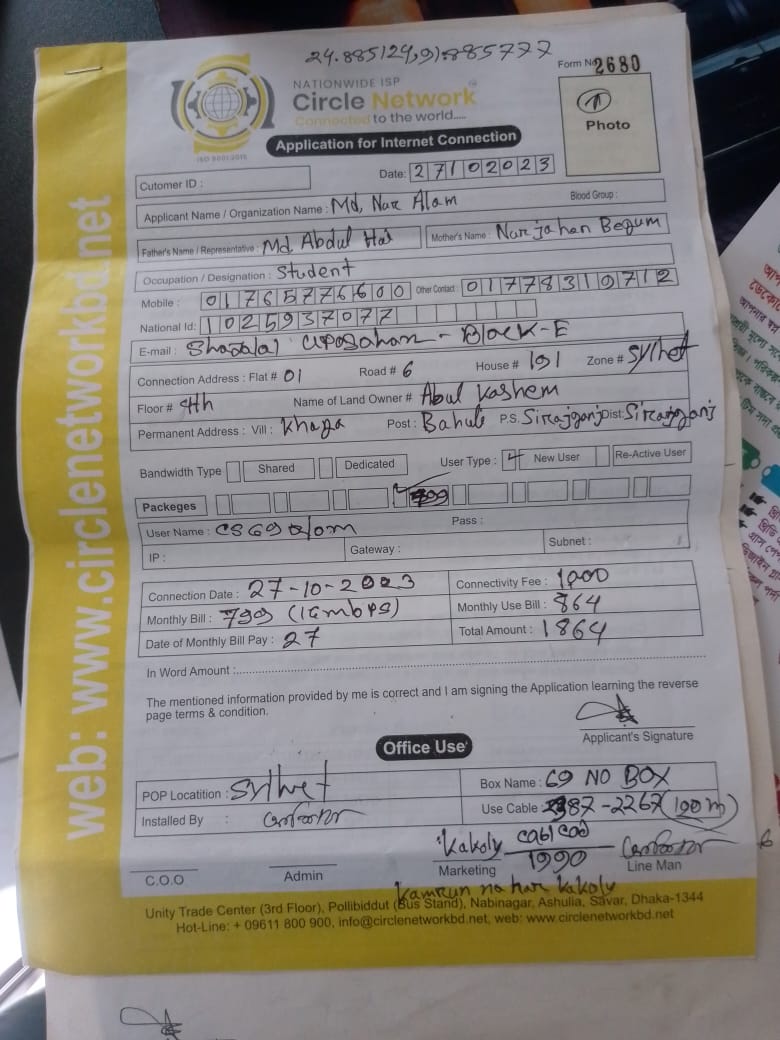 24.885124,91.885777
Form No 2680
NATIONWIDE ISP
Circle Network
Connected to the world.....
ISO 9001:2015
Photo
Application for Internet Connection
Date: 27102023
Cutomer ID :
Applicant Name / Organization Name : Md, Nur Alam Blood Group :
Father's Name / Representative : Md Abdul Hai Mother's Name : Nurjahan Begum
Occupation / Designation : Student
Mobile : 01765776600 Other Contact : 01778319712
National Id: 1025937077
E-mail : Shadalal Uposahar - Block-E
Connection Address : Flat # 01 Road # 6 House # 191 Zone # Sylhet
Floor # 4th Name of Land Owner # Abul Kashem
Permanent Address : Vill : Khaga Post : Bahuli P.S. Sirajganj Dist: Sirajganj
Bandwidth Type Shared Dedicated User Type : New User Re-Active User
Packeges 799
User Name : Pass :
IP : Gateway : Subnet :
Connection Date : 27-10-2023 Connectivity Fee : 1000
Monthly Bill : 799 (16mbps) Monthly Use Bill : 864
Date of Monthly Bill Pay : 27 Total Amount : 1864
In Word Amount :
The mentioned information provided by me is correct and I am signing the Application learning the reverse
page terms & condition.
Applicant's Signature
Office Use
POP Locatition : Sylhet Box Name : 69 NO BOX
Installed By : Use Cable : 87-2267 (100m)
Kakoly 1990
C.O.O Admin Marketing Line Man
Kamrun nahar kakoly
Unity Trade Center (3rd Floor), Pollibiddut (Bus Stand), Nabinagar, Ashulia, Savar, Dhaka-1344
Hot-Line: + 09611 800 900, info@circlenetworkbd.net, web: www.circlenetworkbd.net
web: www.circlenetworkbd.net